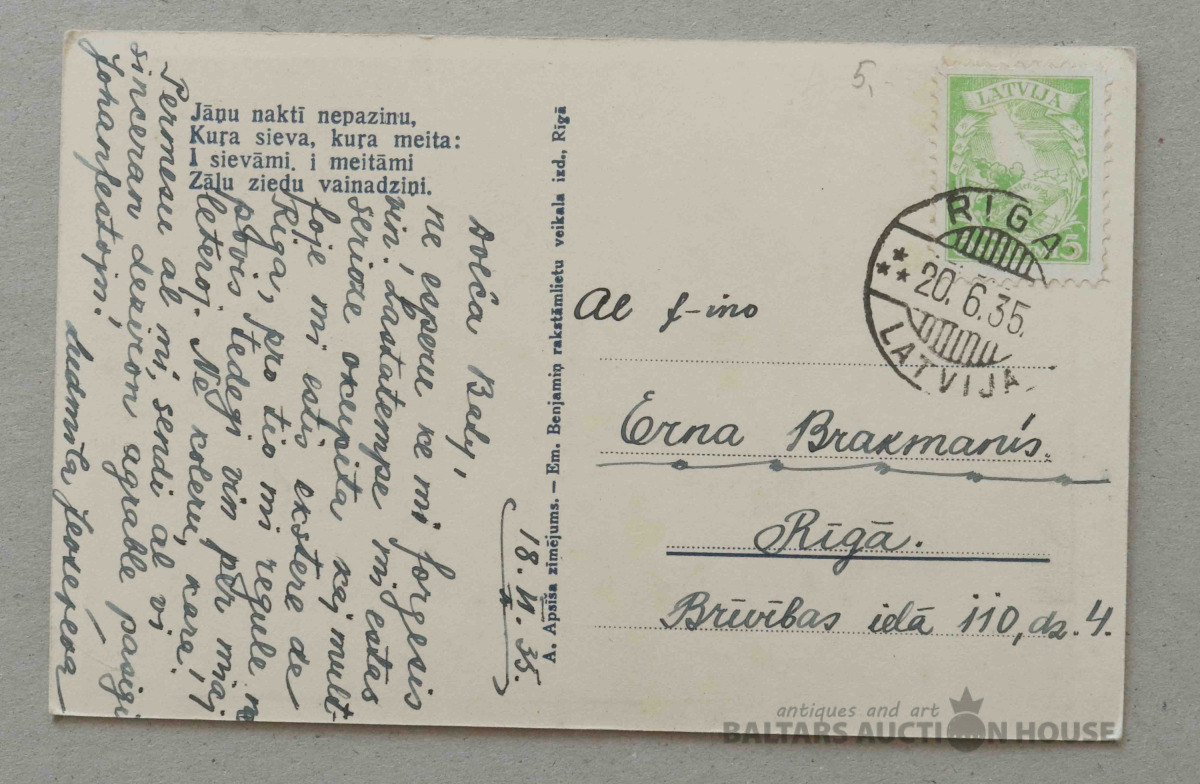 Jāņu naktī nepazinu,
Kuŗa sieva, kuŗa meita:
I sievāmi, i meitāmi
Zāļu ziedu vainadziņi.
A. Apsīša zīmējums. — Em. Benjamiņ rakstāmlietu veikala izd., Rīgā
18. VI. 35.
Dolĉa Bedy,
ne esperu ke mi forgesis
vin; Lastatempe mi estas
serioze okupita kaj mult-
foje mi estis ekstere de
Riga, pro tio mi regule ne
povis tedegi vin per miaj
leteroj. Ne koleru, kara!
Permesu al mi, sendi al vi
sinceran deziron agrable pasigi
Johanfestojn!
Ludmila Jevsejeva
5,-
LATVIJA
5
RĪGA
20. 6. 35.
LATVIJA
Al f-ino
Erna Brakmanis.
Rīgā.
Brīvības ielā 110, dz. 4.
antiques and art
BALTARS AUCTION HOUSE